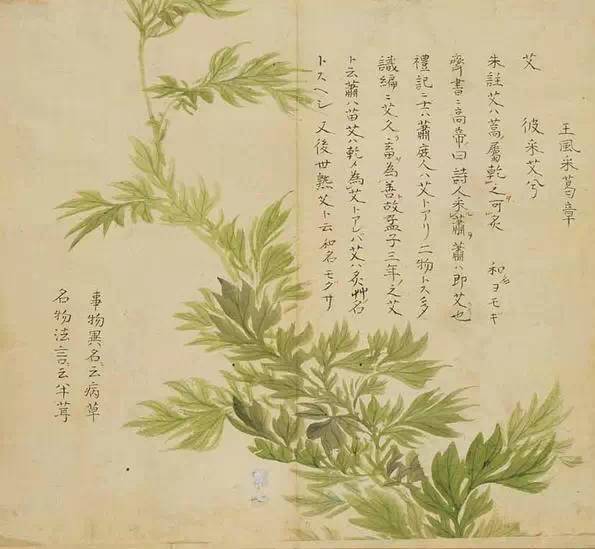 王風采葛章
艾 彼采艾兮
朱註艾ハ蒿屬乾之可灸 和名ヨモギ
齊書ニ高帝曰詩人采蕭蕭ハ即艾也
禮記ニ士ハ蕭庶人ハ艾トアリ二物トスタ
識編ニ艾久畜為善故孟子三年之艾
ト云蕭ハ苗艾ハ乾メ為艾トアレバ艾ハ灸艸名
トスヘシ 又後世熟艾ト云和名モクサ
事物異名ニ云病草
名物法言ニ云半茸